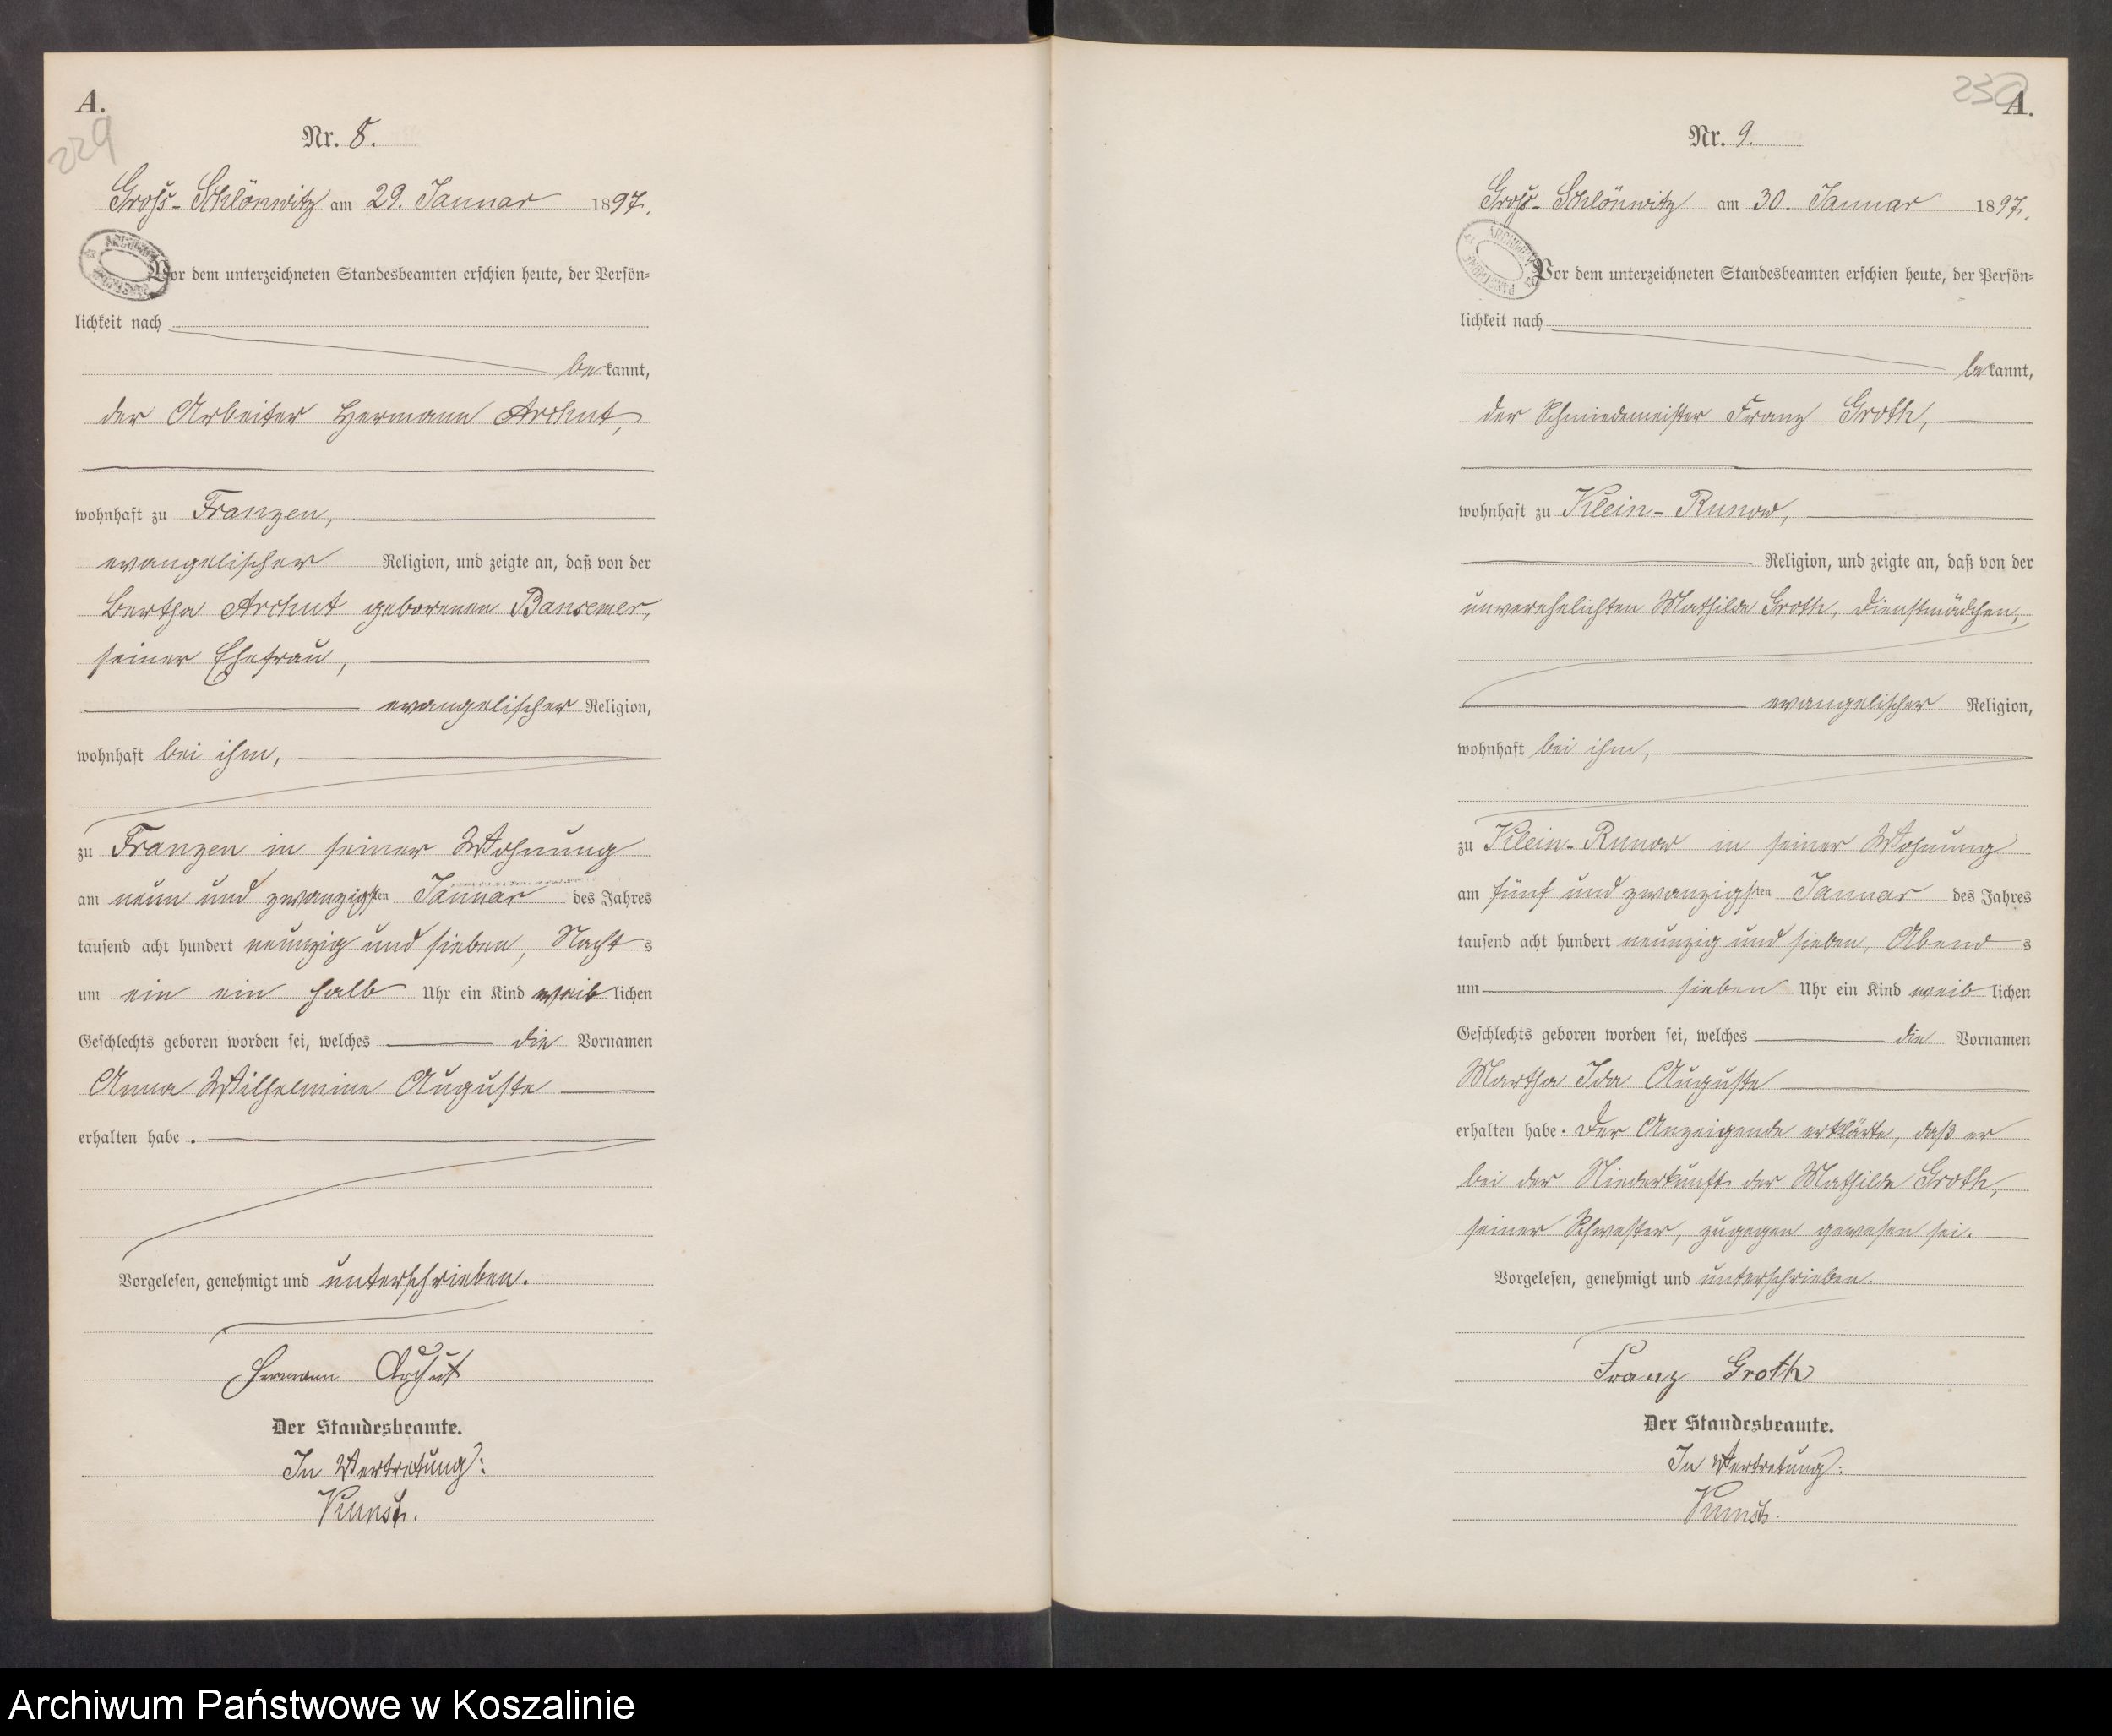 A.
229
Nr. 8.
Groß-Schlönwitz am 29. Januar 1897.
Vor dem unterzeichneten Standesbeamten erschien heute, der Persön-
lichkeit nach
bekannt,
der Arbeiter Hermann Archut,
wohnhaft zu Franzen,
evangelischer Religion, und zeigte an, daß von der
Bertha Archut geborenen Bansemer,
seiner Ehefrau,
evangelischer Religion,
wohnhaft bei ihm,
zu Franzen in seiner Wohnung
am neun und zwanzigsten Januar des Jahres
tausend acht hundert neunzig und sieben, Nachts
um ein ein halb Uhr ein Kind weiblichen
Geschlechts geboren worden sei, welches die Vornamen
Anna Wilhelmine Auguste
erhalten habe.
Vorgelesen, genehmigt und unterschrieben.
Hermann Archut
Der Standesbeamte.
In Vertretung:
Kunst.
230
A.
Nr. 9.
Groß-Schlönwitz am 30. Januar 1897.
Vor dem unterzeichneten Standesbeamten erschien heute, der Persön-
lichkeit nach
bekannt,
der Schmiedemeister Franz Groth,
wohnhaft zu Klein-Runow,
Religion, und zeigte an, daß von der
unverehelichten Mathilde Groth, Dienstmädchen,
evangelischer Religion,
wohnhaft bei ihm,
zu Klein-Runow in seiner Wohnung
am fünf und zwanzigsten Januar des Jahres
tausend acht hundert neunzig und sieben, Abends
um sieben Uhr ein Kind weiblichen
Geschlechts geboren worden sei, welches die Vornamen
Martha Ida Auguste
erhalten habe. Der Anzeigende erklärte, daß er
bei der Niederkunft der Mathilde Groth,
seiner Schwester, zugegen gewesen sei.
Vorgelesen, genehmigt und unterschrieben.
Franz Groth
Der Standesbeamte.
In Vertretung:
Kunst.
Archiwum Państwowe w Koszalinie